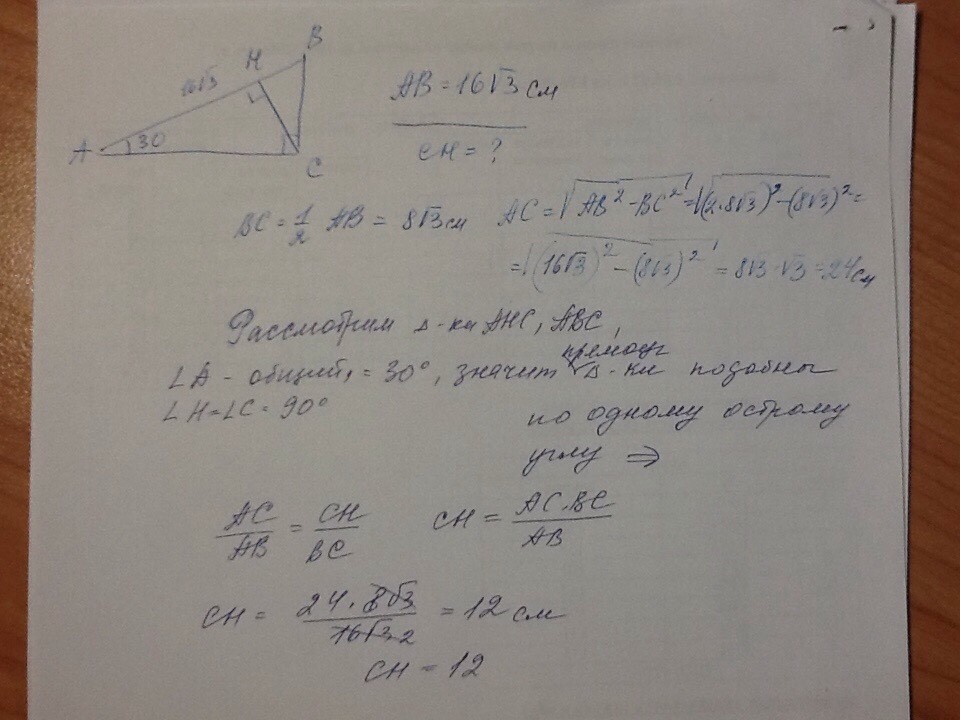 B
H
16√3
A
30
C
AB = 16√3 см
CH = ?
BC = 1/2 AB = 8√3 см
AC = √(AB² - BC²) = √((2·8√3)² - (8√3)²) =
= √((16√3)² - (8√3)²) = 8√3·√3 = 24 см
Рассмотрим Δ-ки AHC, ABC,
∠A - общий, = 30°, значит Δ-ки подобны
∠H = ∠C = 90°
по одному острому
углу ⇒
AC/AB = CH/BC
CH = AC·BC/AB
CH = 24·8√3/16√3 2 = 12 см
CH = 12